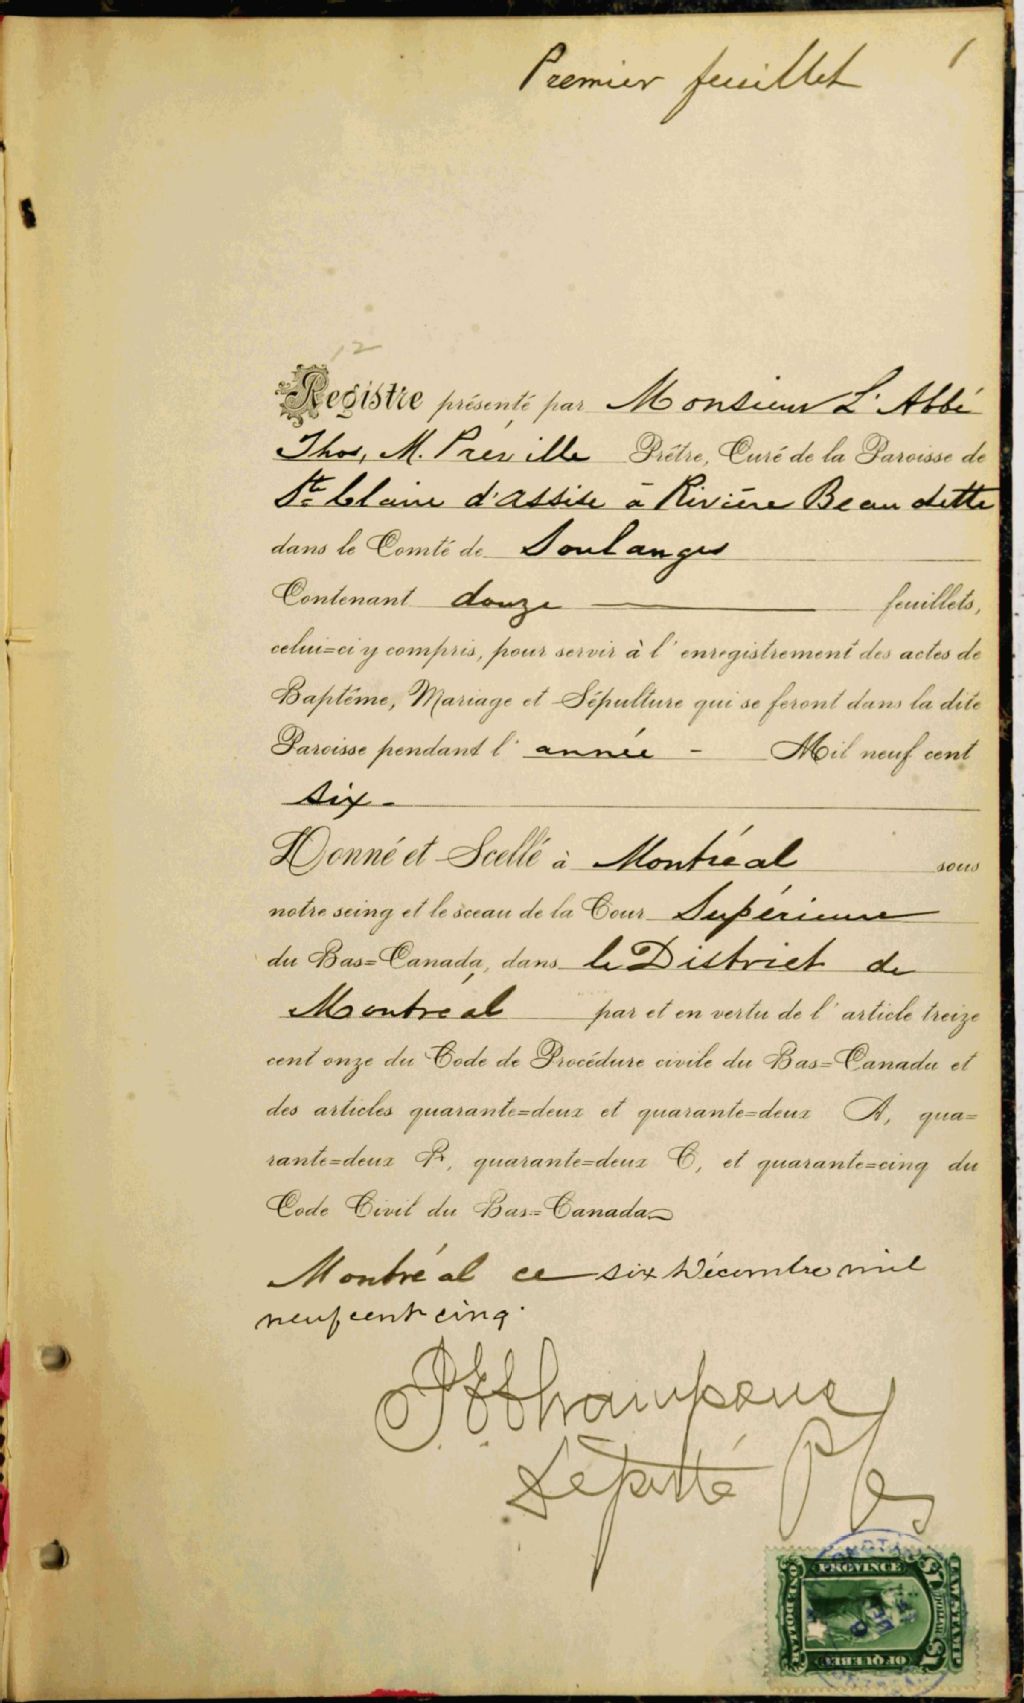 Premier feuillet
1
12
Registre présenté par Monsieur L'Abbé
Thos, M. Préville Prêtre, Curé de la Paroisse de
Ste Claire d'assise à Rivière Beaudette
dans le Comté de Soulanges
Contenant douze feuillets,
celui=ci y compris, pour servir à l'enregistrement des actes de
Baptême, Mariage et Sépulture qui se feront dans la dite
Paroisse pendant l'année - Mil neuf cent
six -
Donné et Scellé à Montréal sous
notre seing et le sceau de la Cour Supérieure
du Bas=Canada, dans le District de
Montréal par et en vertu de l'article treize
cent onze du Code de Procédure civile du Bas=Canada et
des articles quarante=deux et quarante=deux A, qua=
rante=deux B, quarante=deux C, et quarante=cinq du
Code Civil du Bas=Canada
Montréal ce six Décembre mil
neuf cent cinq.
Député
PROVINCE
OF QUEBEC
LAW STAMP
ONE DOLLAR
$1 DOLLAR $1